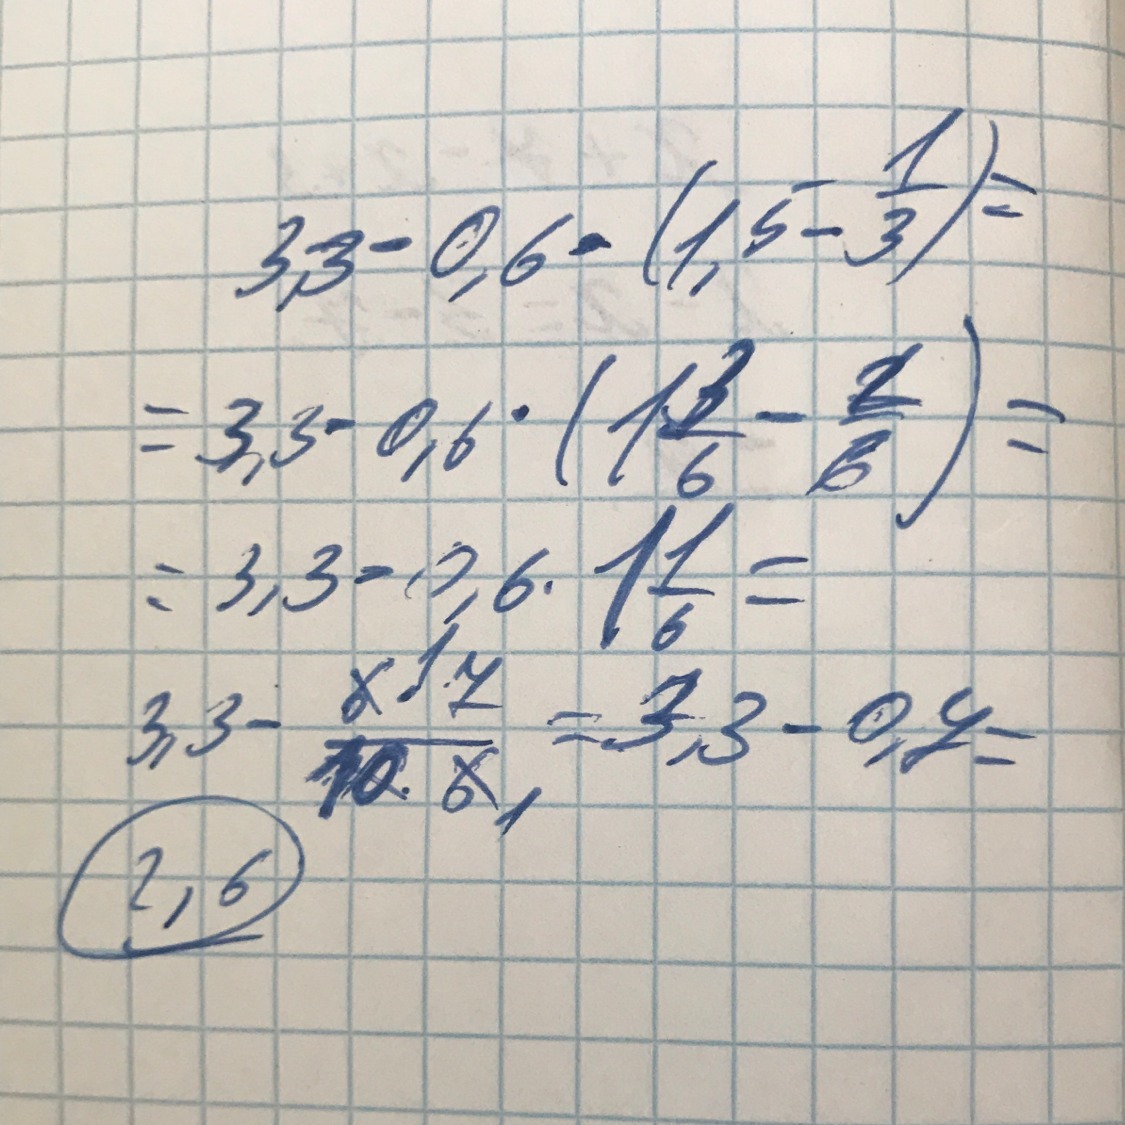 3,3 - 0,6 · (1,5 - 1/3) =
= 3,3 - 0,6 · (1 3/6 - 2/6) =
= 3,3 - 0,6 · 1 1/6 =
3,3 - 6 1 · 7 / 10 · 6 1 = 3,3 - 0,7 =
2,6